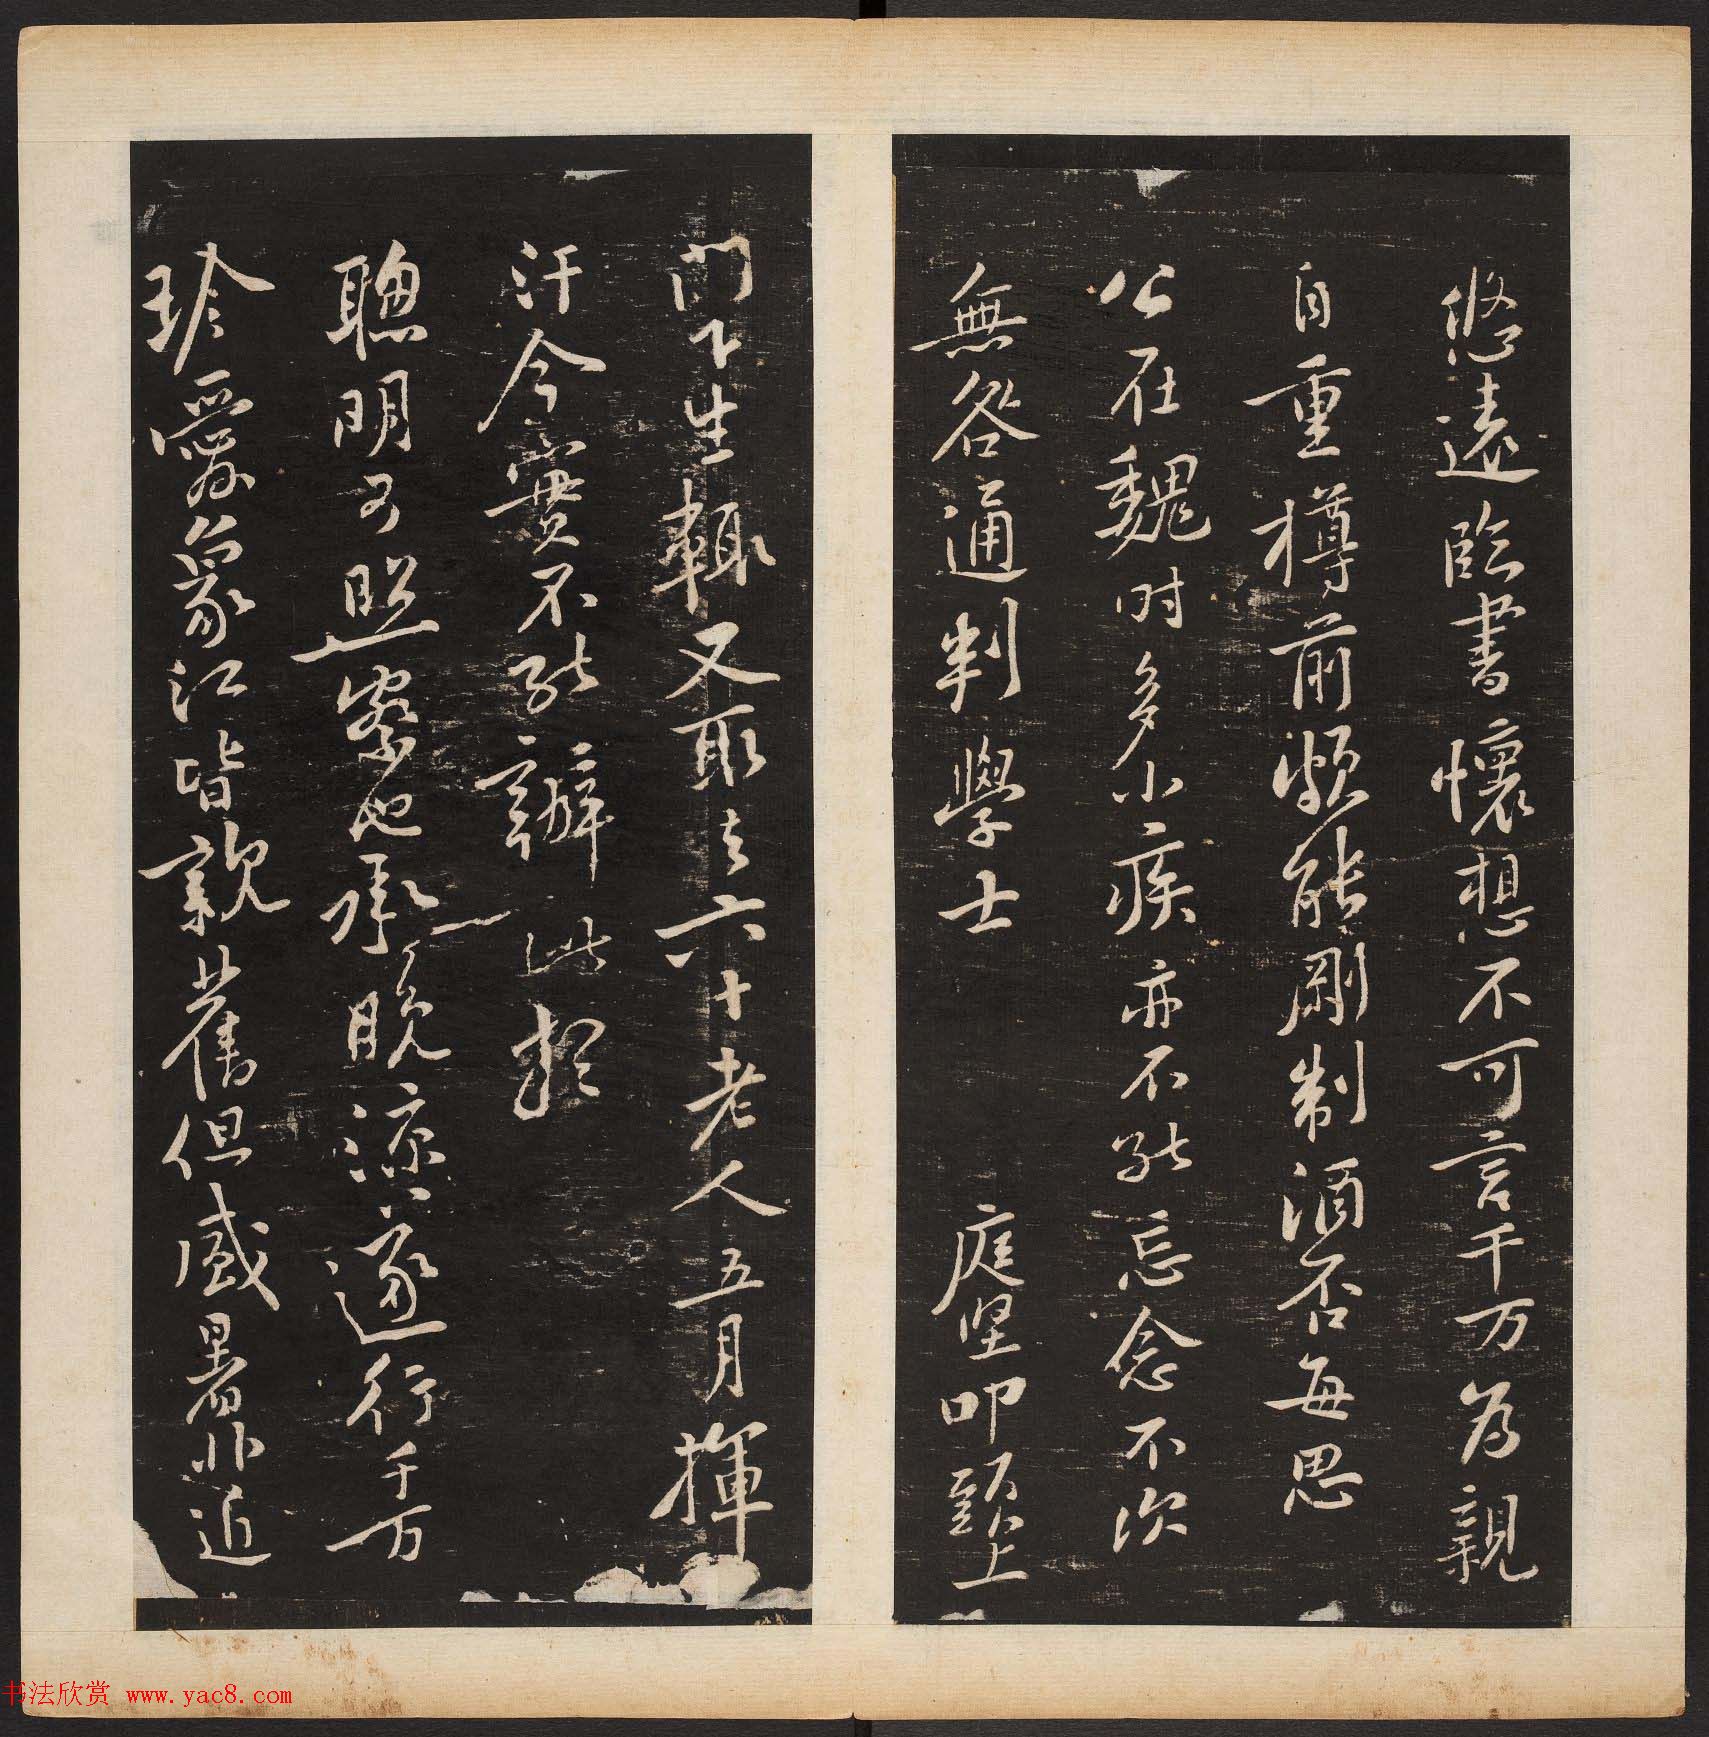 悠遠臨書懷想不可言千万為親
自重樽前頗能剛制酒否每思
公在魏时多小疾亦不能忘念不次
無咎通判學士 庭坚叩頭上
門下生輒又取去六十老人五月揮
汗今實不能辦此想
聰明可照察也承晚涼遂行千万
珍愛象江皆親舊但盛暑非近
书法欣赏 www.yac8.com